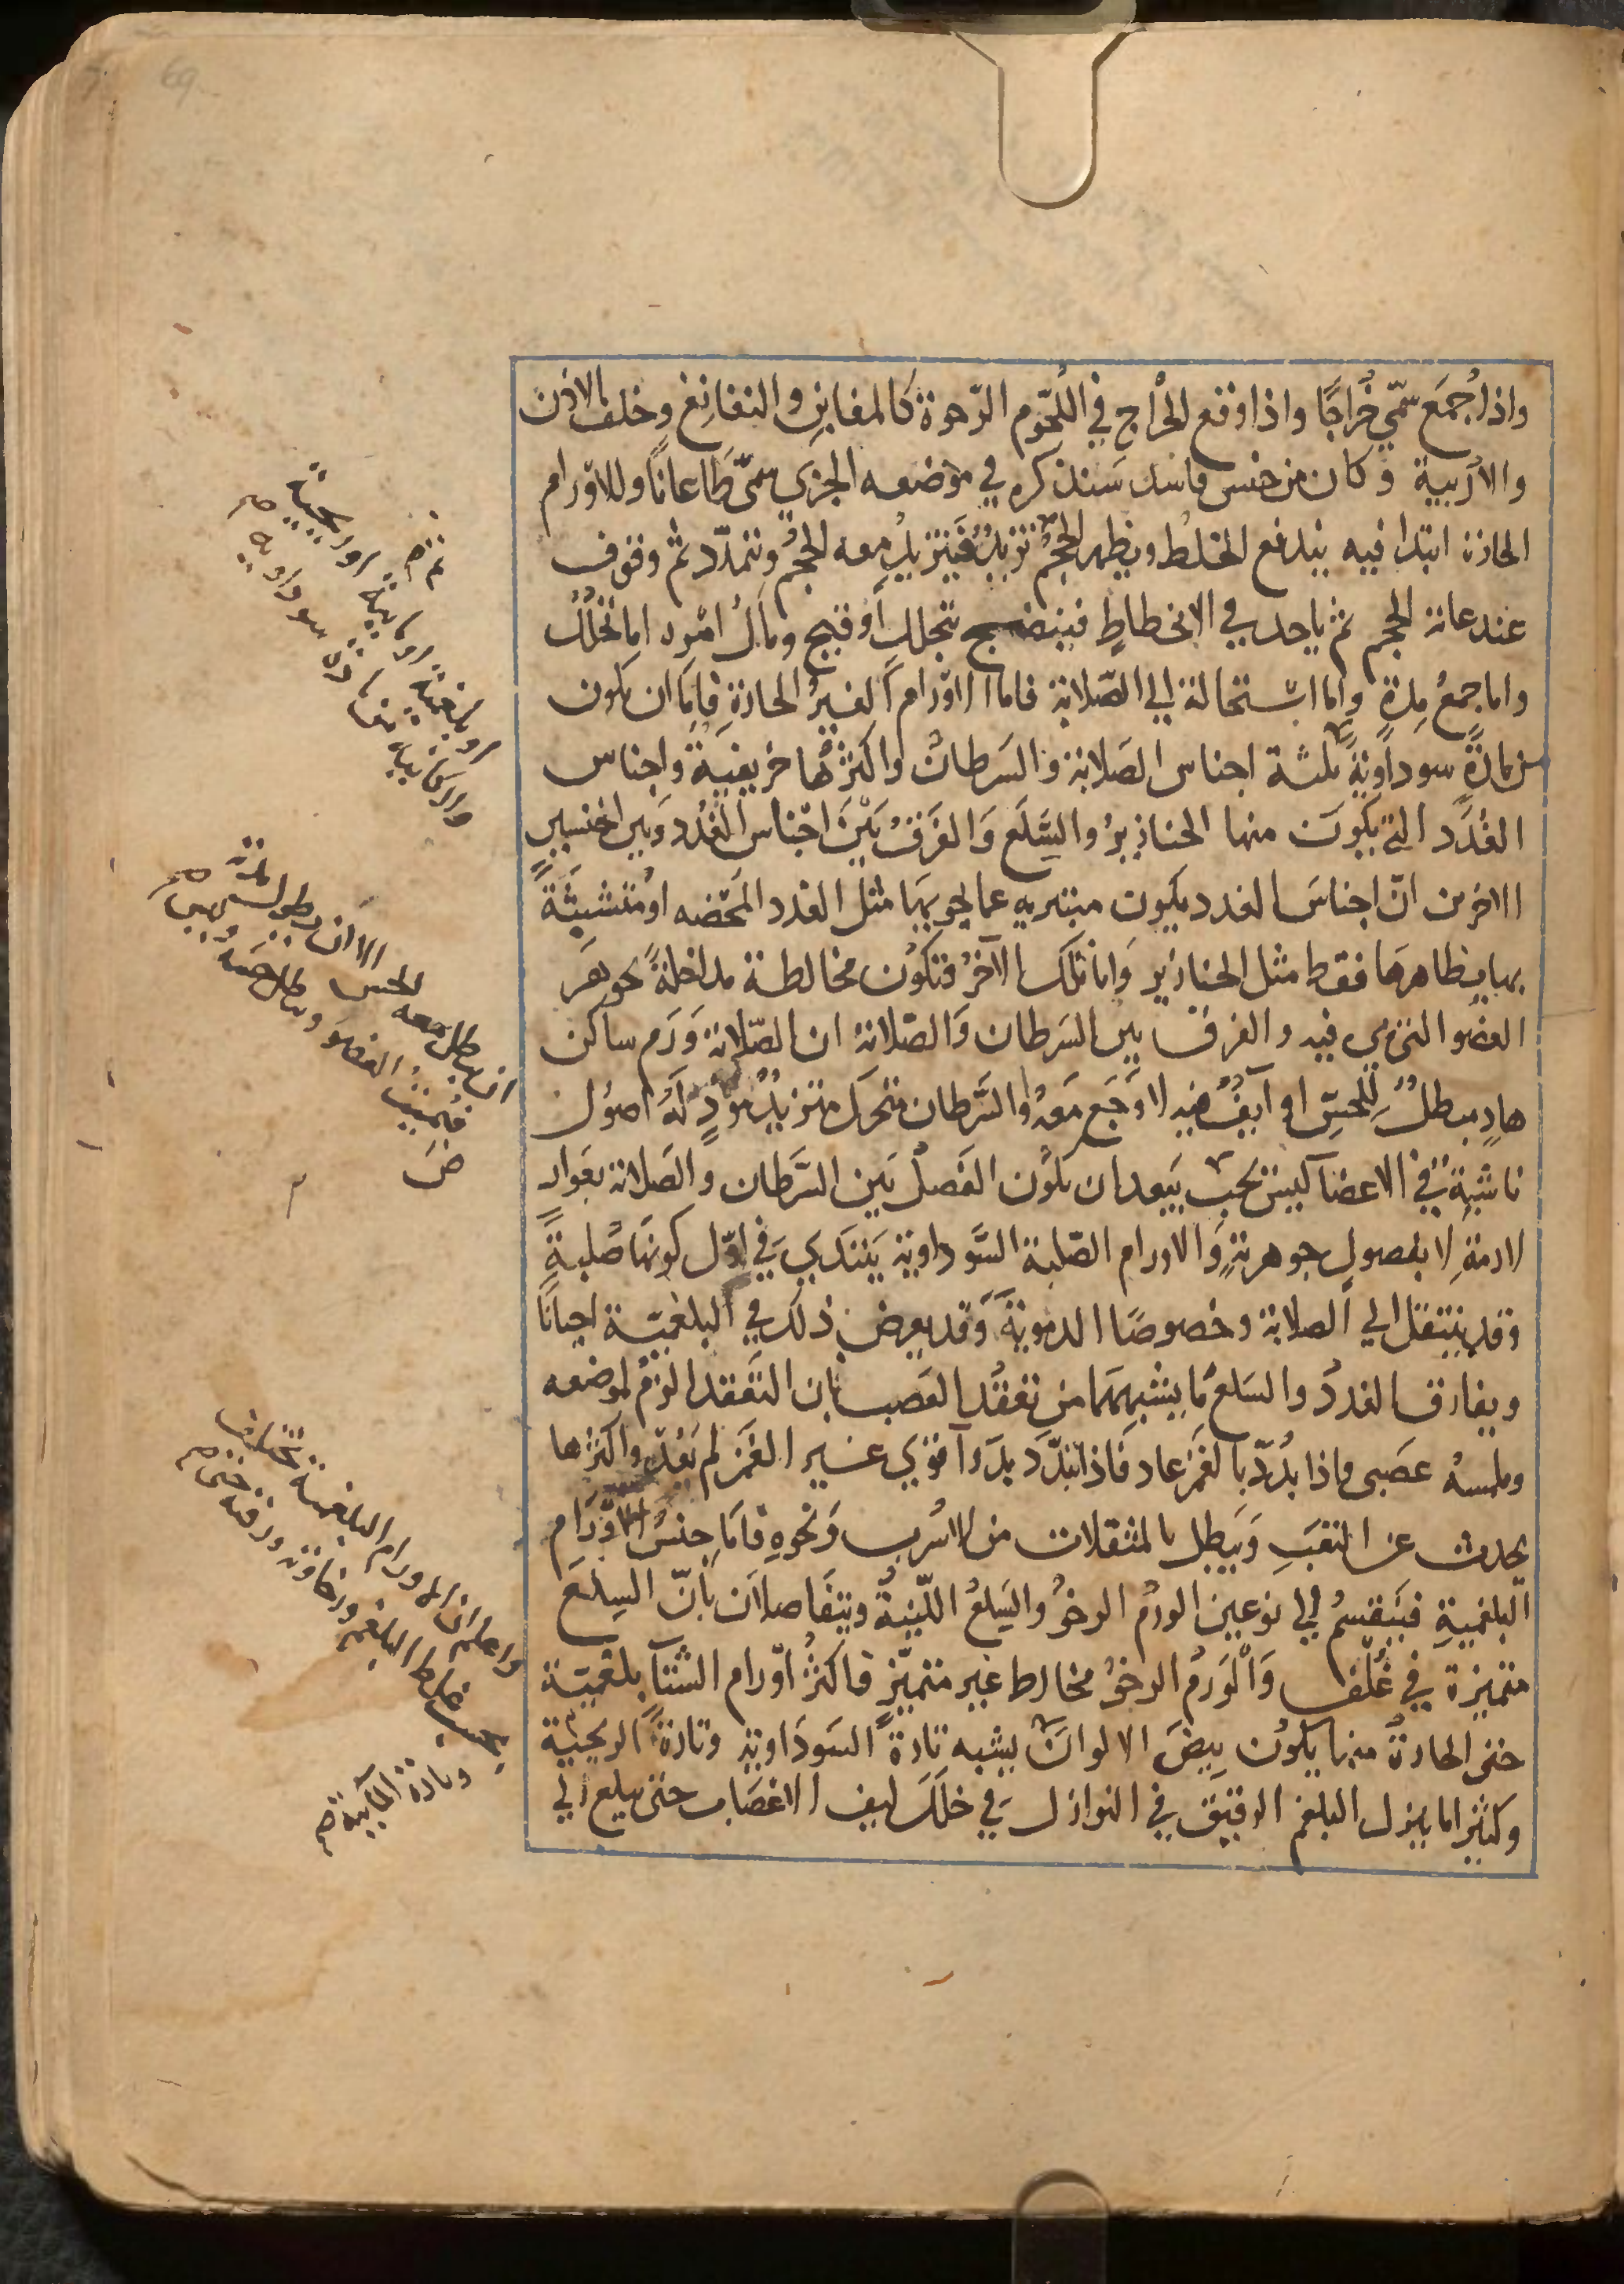 69
واذا جمع سمّي خُراجًا واذا وقع الخراج في اللحوم الرخوة كالمغابن والنغانغ وخلف الاذن
والاربية وكان من جنس فاسد سنذكره في موضعه الجزي سمّي طاعانًا وللاورام
الحادة ابتدا فيه يندفع الخلط ويظهر الحجم ثم تزيد فيتزيد معه الحجم ويتمدد ثم وقوف
عند غاية الحجم ثم ياخذ في الانحطاط فينضج بتحلل او قيح ومآل امره اما تحلل
واما جمع مدة واما استحالة الي الصلابة فاما الاورام الغير الحادة فاما ان يكون
من مادة سوداوية ثلثة اجناس الصلابة والسرطان واكثرها خريفية واجناس
الغدد التي يكون منها الخنازير والسلع والفرق بين اجناس الغدد وبين الجنسين
الاخرين انّ اجناس الغدد يكون مبتريه عما يحويها مثل الغدد المحضه او متشبثة
بها بظاهرها فقط مثل الخنازير واما تلك الآخر فتكون مخالطة مداخلة بجوهر
العضو التي هي فيه والفرق بين السرطان والصلابة ان الصلابة ورم ساكن
هادٍ مبطل للحس او آيف فيه لا وجع معه والسرطان متحرك متزيد موذٍ له اصول
ناشبة في الاعضا ليس يجب ببعد ان يكون الفصل بين السرطان والصلابة بعوارد
لازمة لا بفصول جوهرية والاورام الصلبة السوداوية يبتدي في اول كونها صلبة
وقد ينتقل الي الصلابة وخصوصًا الدموية وقد يعرض ذلك في البلغمية احيانًا
ويفارق الغدد والسلع ما يشبههما من تعقد العصب بان التعقد الزم لموضعه
وملمسه عصبي واذا بُدّد بالغمز عاد فاذا تبدد بدوآ قوي غير الغمز لم يعد واكثرها
يحدث عن التعب ويبطل بالمثقلات من الاسرب ونحوه فاما جنس الاورام
البلغمية فينقسم الي نوعين الورم الرخو والسلع اللينة ويتفاصلان بانّ السلع
متميزة في غلف والورم الرخو مخالط غير متميز فاكثر اورام الشتا بلغمية
حتي الحادة منها يكون بيض الالوان يشبه تارة السوداوية وتارة الريحية
وكثيرا ما ينزل البلغم الرقيق في النوازل في خلل ليف الاعصاب حتي يبلغ الي
او بلغمية او مائية او ريحية
العضو
واعلم ان الاورام البلغمية تختلف
بحسب غلظ البلغم ورخاوته ورقته حتي
وتارة المآيية صح